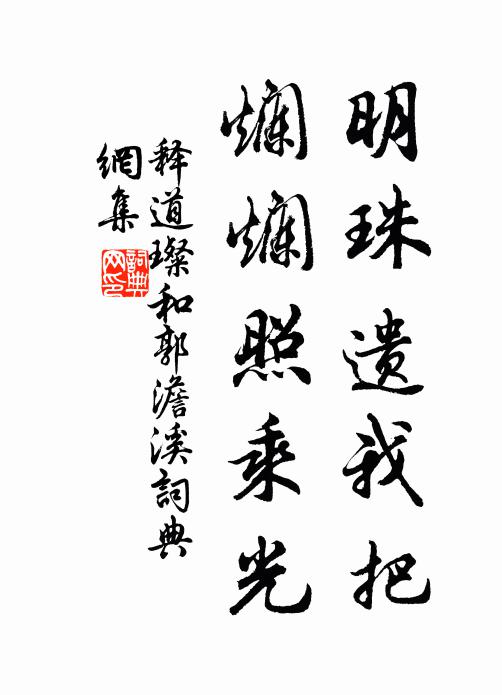 明珠遗我把
爛爛照乘光
释道璨和郭澹溪詞典
網集
詞典
网印